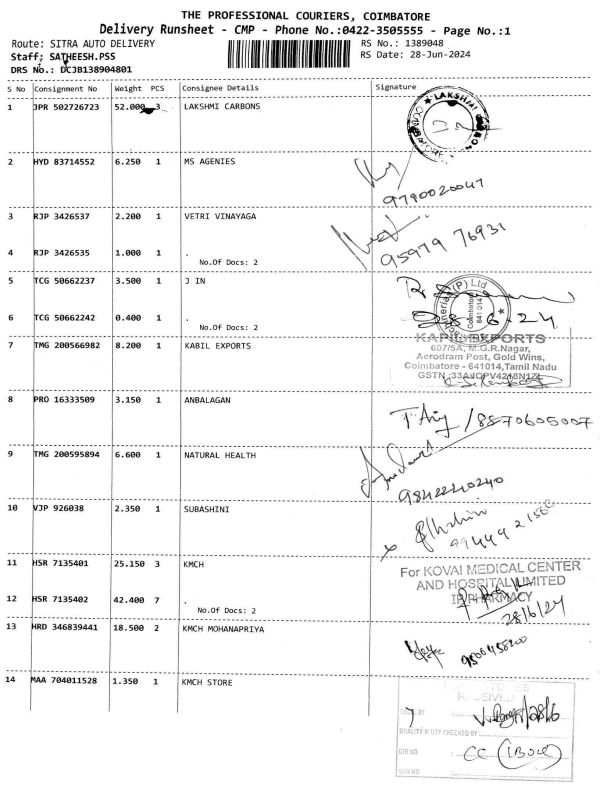 THE PROFESSIONAL COURIERS, COIMBATORE
Delivery Runsheet - CMP - Phone No.:0422-3505555 - Page No.:1
Route: SITRA AUTO DELIVERY RS No.: 1389048
Staff: SATHEESH.PSS RS Date: 28-Jun-2024
DRS No.: DCJB138904801
S No Consignment No Weight PCS Consignee Details Signature
1 JPR 502726723 52.000 3 LAKSHMI CARBONS
2 HYD 83714552 6.250 1 MS AGENIES
9790020047
3 RJP 3426537 2.200 1 VETRI VINAYAGA
95979 76931
4 RJP 3426535 1.000 1 .
No.Of Docs: 2
5 TCG 50662237 3.500 1 J IN
6 TCG 50662242 0.400 1 .
No.Of Docs: 2
28.6.24
7 TMG 200566982 8.200 1 KABIL EXPORTS
KAPIL EXPORTS
607/5A, M.G.R.Nagar,
Aerodram Post, Gold Wins,
Coimbatore - 641014,Tamil Nadu
8 PRO 16333509 3.150 1 ANBALAGAN
8870605007
9 TMG 200595894 6.600 1 NATURAL HEALTH
9842240240
10 VJP 926038 2.350 1 SUBASHINI
11 HSR 7135401 25.150 3 KMCH
For KOVAI MEDICAL CENTER
AND HOSPITAL LIMITED
IP PHARMACY
28/6/24
12 HSR 7135402 42.400 7 .
No.Of Docs: 2
13 HRD 346839441 18.500 2 KMCH MOHANAPRIYA
14 MAA 704011528 1.350 1 KMCH STORE
RECEIVED
QUALITY & QTY CHECKED BY
GIR NO
CC (1Box)
GRN NO